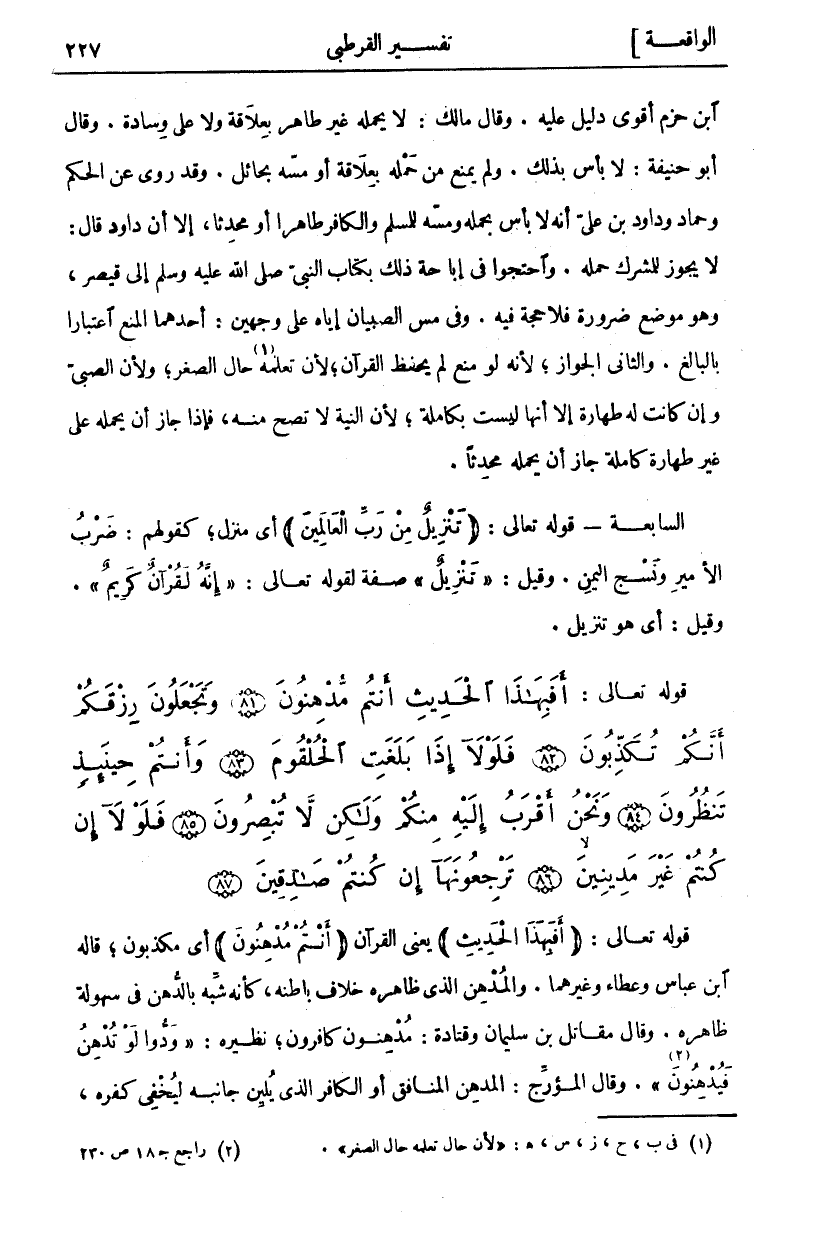 الواقعـــة ]
تفســـير القرطبى
٢٢٧
ٱبن حزم أقوى دليل عليه . وقال مالك : لا يحمله غير طاهر بِعِلَاقة ولا على وِسادة . وقال
أبو حنيفة : لا بأس بذلك . ولم يمنع من حَمْله بِعِلَاقة أو مسّه بحائل . وقد روى عن الحكم
وحماد وداود بن علىّ أنه لا بأس بحمله ومسّه للمسلم والكافر طاهرا أو محدثا، إلا أن داود قال:
لا يجوز للمشرك حمله . وٱحتجوا فى إباحة ذلك بكتاب النبىّ صلى الله عليه وسلم إلى قيصر ،
وهو موضع ضرورة فلا حجة فيه . وفى مس الصبيان إياه على وجهين : أحدهما المنع ٱعتبارا
بالبالغ . والثانى الجواز ؛ لأنه لو منع لم يحفظ القرآن؛ لأن تعلمه(١) حال الصغر؛ ولأن الصبىّ
وإن كانت له طهارة إلا أنها ليست بكاملة ؛ لأن النية لا تصح منـــه، فإذا جاز أن يحمله على
غير طهارة كاملة جاز أن يحمله محدِثاً .
السابعـــة — قوله تعالى : ﴿ تَنْزِيلٌ مِنْ رَبِّ الْعَالَمِينَ ﴾ أى منزل؛ كقولهم : ضَرْبُ
الأميرِ ونَسْج اليمنِ . وقيل : « تَنْزِيلٌ » صـفة لقوله تعـالى : « إِنَّهُ لَقُرْآنٌ كَرِيمٌ » .
وقيل : أى هو تنزيل .
قوله تعـالى : أَفَبِهَٰذَا ٱلْحَدِيثِ أَنتُم مُّدْهِنُونَ ﴿٨١﴾ وَتَجْعَلُونَ رِزْقَكُمْ
أَنَّكُمْ تُكَذِّبُونَ ﴿٨٢﴾ فَلَوْلَآ إِذَا بَلَغَتِ ٱلْحُلْقُومَ ﴿٨٣﴾ وَأَنتُمْ حِينَئِذٍ
تَنظُرُونَ ﴿٨٤﴾ وَنَحْنُ أَقْرَبُ إِلَيْهِ مِنكُمْ وَلَٰكِن لَّا تُبْصِرُونَ ﴿٨٥﴾ فَلَوْلَآ إِن
كُنتُمْ غَيْرَ مَدِينِينَ ۙ ﴿٨٦﴾ تَرْجِعُونَهَآ إِن كُنتُمْ صَٰدِقِينَ ﴿٨٧﴾
قوله تعـالى : ﴿ أَفَبِهَذَا الْحَدِيثِ ﴾ يعنى القرآن ﴿ أَنْتُمْ مُدْهِنُونَ ﴾ أى مكذبون ؛ قاله
ٱبن عباس وعطاء وغيرهما . والمُدْهِن الذى ظاهره خلاف باطنه، كأنه شبِّه بالدُّهن فى سهولة
ظاهره . وقال مقـاتل بن سليمان وقتادة : مُدْهِنـــون كافرون؛ نظـيره : « وَدُّوا لَوْ تُدْهِنُ
فَيُدْهِنُونَ(٢) » . وقال المـؤرِّج : المدهن المنـافق أو الكافر الذى يُلَيِن جانبـه لِيُخْفِى كفره ،
(١) فى ب ، ح ، ز ، س ، ه : «لأن حال تعلمه حال الصغر» .
(٢) راجع جـ ١٨ ص ٢٣٠